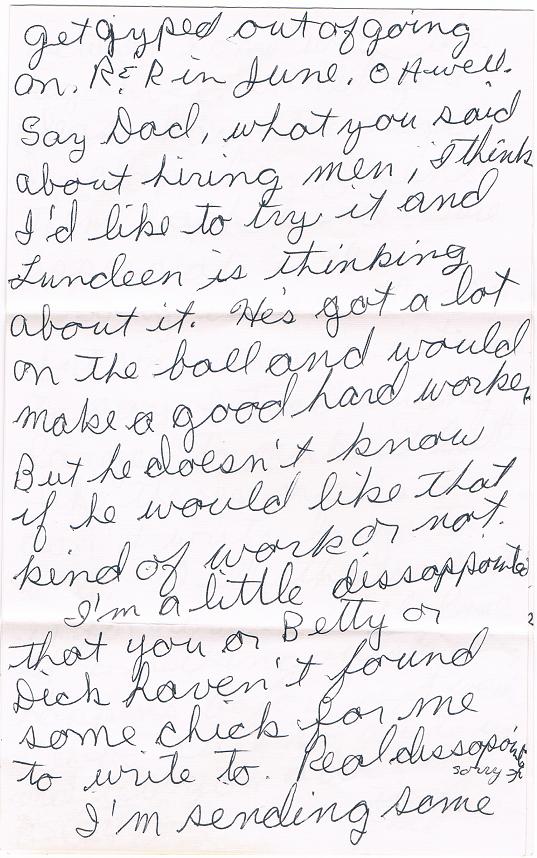 get gyped out of going
on. R & R in June. O H well.
Say Dad, what you said
about hiring men, I think
I'd like to try it and
Lundeen is thinking
about it. He's got a lot
on the ball and would
make a good hard worker,
But he doesn't know
if he would like that
kind of work or not.
I'm a little dissappointed
that you or Betty or
Dick haven't found
some chick for me
to write to. Real dissapoint
sorry
I'm sending some